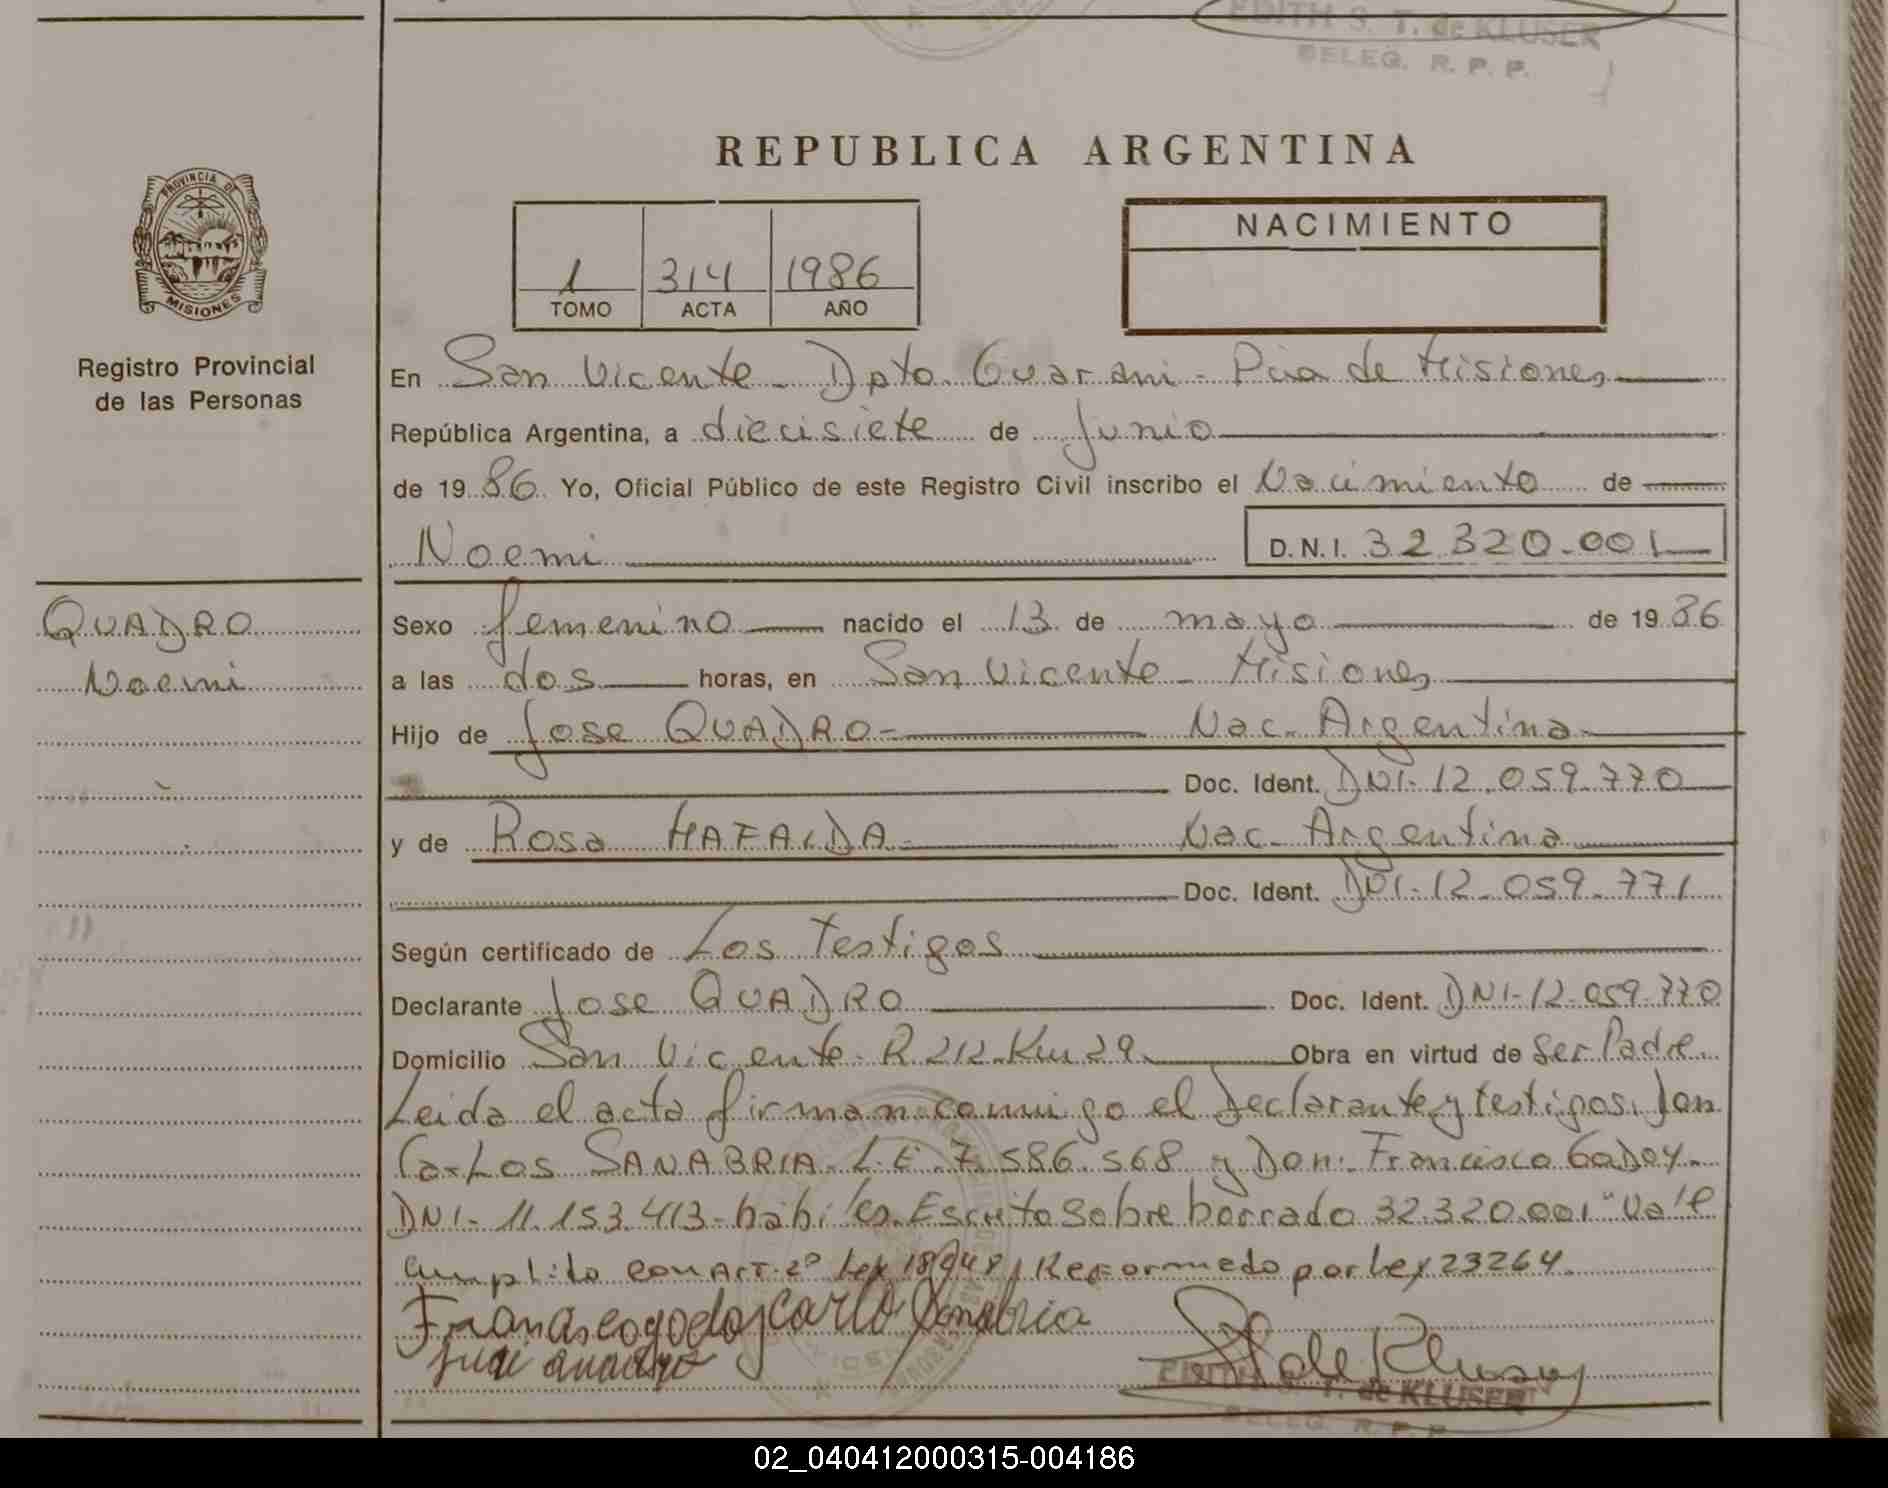 EDITH S. T. de KLUSER
DELEG. R. P. P.
REPUBLICA ARGENTINA
PROVINCIA DE
MISIONES
Registro Provincial
de las Personas
1 314 1986
TOMO ACTA AÑO
NACIMIENTO
En San Vicente - Dpto Guarani - Pcia de Misiones
República Argentina, a diecisiete de Junio
de 1986 Yo, Oficial Público de este Registro Civil inscribo el Nacimiento de
Noemi D.N.I. 32.320.001
QUADRO
Noemi
Sexo femenino nacido el 13 de mayo de 1986
a las dos horas, en San Vicente - Misiones
Hijo de Jose QUADRO - Nac. Argentina
Doc. Ident. DNI-12.059.770
y de Rosa MAFALDA - Nac. Argentina
Doc. Ident. DNI-12-059-771
Según certificado de Los Testigos
Declarante Jose QUADRO Doc. Ident. DNI-12-059-770
Domicilio San Vicente - R 212-Km 29 Obra en virtud de Ser Padre
Leida el acta firman conmigo el Declarante y testigos. Don
Carlos SANABRIA - L.E. 7.586.568 y Don. Francisco GaDoy -
DNI- 11.153.413 - habiles. Escrito sobre borrado 32.320.001 "Vale
Cumplido con Art. 2º Ley 18948 / Reformado por Ley 23264.
Francisco godoy Carlo Sanabria
S T de Kluser
EDITH S. T. de KLUSER
DELEG. R. P. P.
02_040412000315-004186